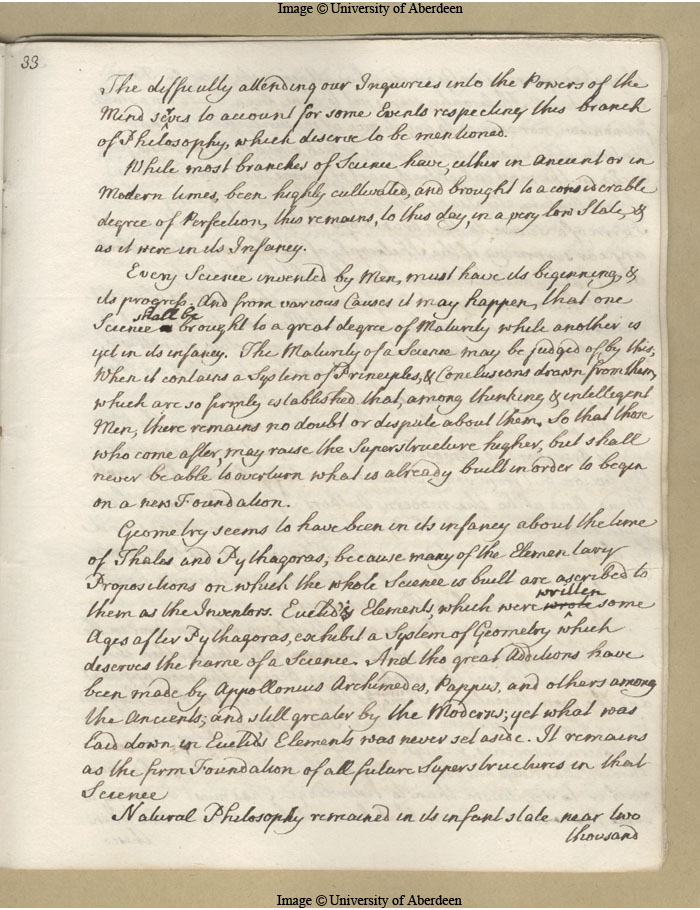 Image © University of Aberdeen
33
The difficulty attending our Inquiries into the Powers of the
Mind serves to account for some Events respecting this branch
of Philosophy, which deserve to be mentioned.
While most branches of Science have, either in Ancient or in
Modern times, been highly cultivated, and brought to a considerable
degree of Perfection, this remains, to this day, in a very low State, &
as it were in its Infancy.
Every Science invented by Men, must have its beginning, &
its progress. And from various Causes it may happen, that one
shall be
Science brought to a great degree of Maturity while another is
yet in its infancy. The Maturity of a Science may be judged of, by this,
When it contains a System of Principles, & Conclusions drawn from them,
which are so firmly established that, among thinking & intelligent
Men, there remains no doubt or dispute about them. So that those
who come after, may raise the Superstructure higher, but shall
never be able to overturn what is already built in order to begin
on a new Foundation.
Geometry seems to have been in its infancy about the time
of Thales and Pythagoras, because many of the Elementary
Propositions on which the whole Science is built are ascribed to
written
them as the Inventors. Euclid's Elements, which were wrote some
Ages after Pythagoras, exhibit a System of Geometry which
deserves the name of a Science. And tho great Additions have
been made by Appollonius Archimedes, Pappus, and others among
the Ancients; and still greater by the Moderns; yet what was
laid down in Euclids Elements was never set aside. It remains
as the firm Foundation of all future Superstructures in that
Science
Natural Philosophy remained in its infant state near two
thousand
Image © University of Aberdeen